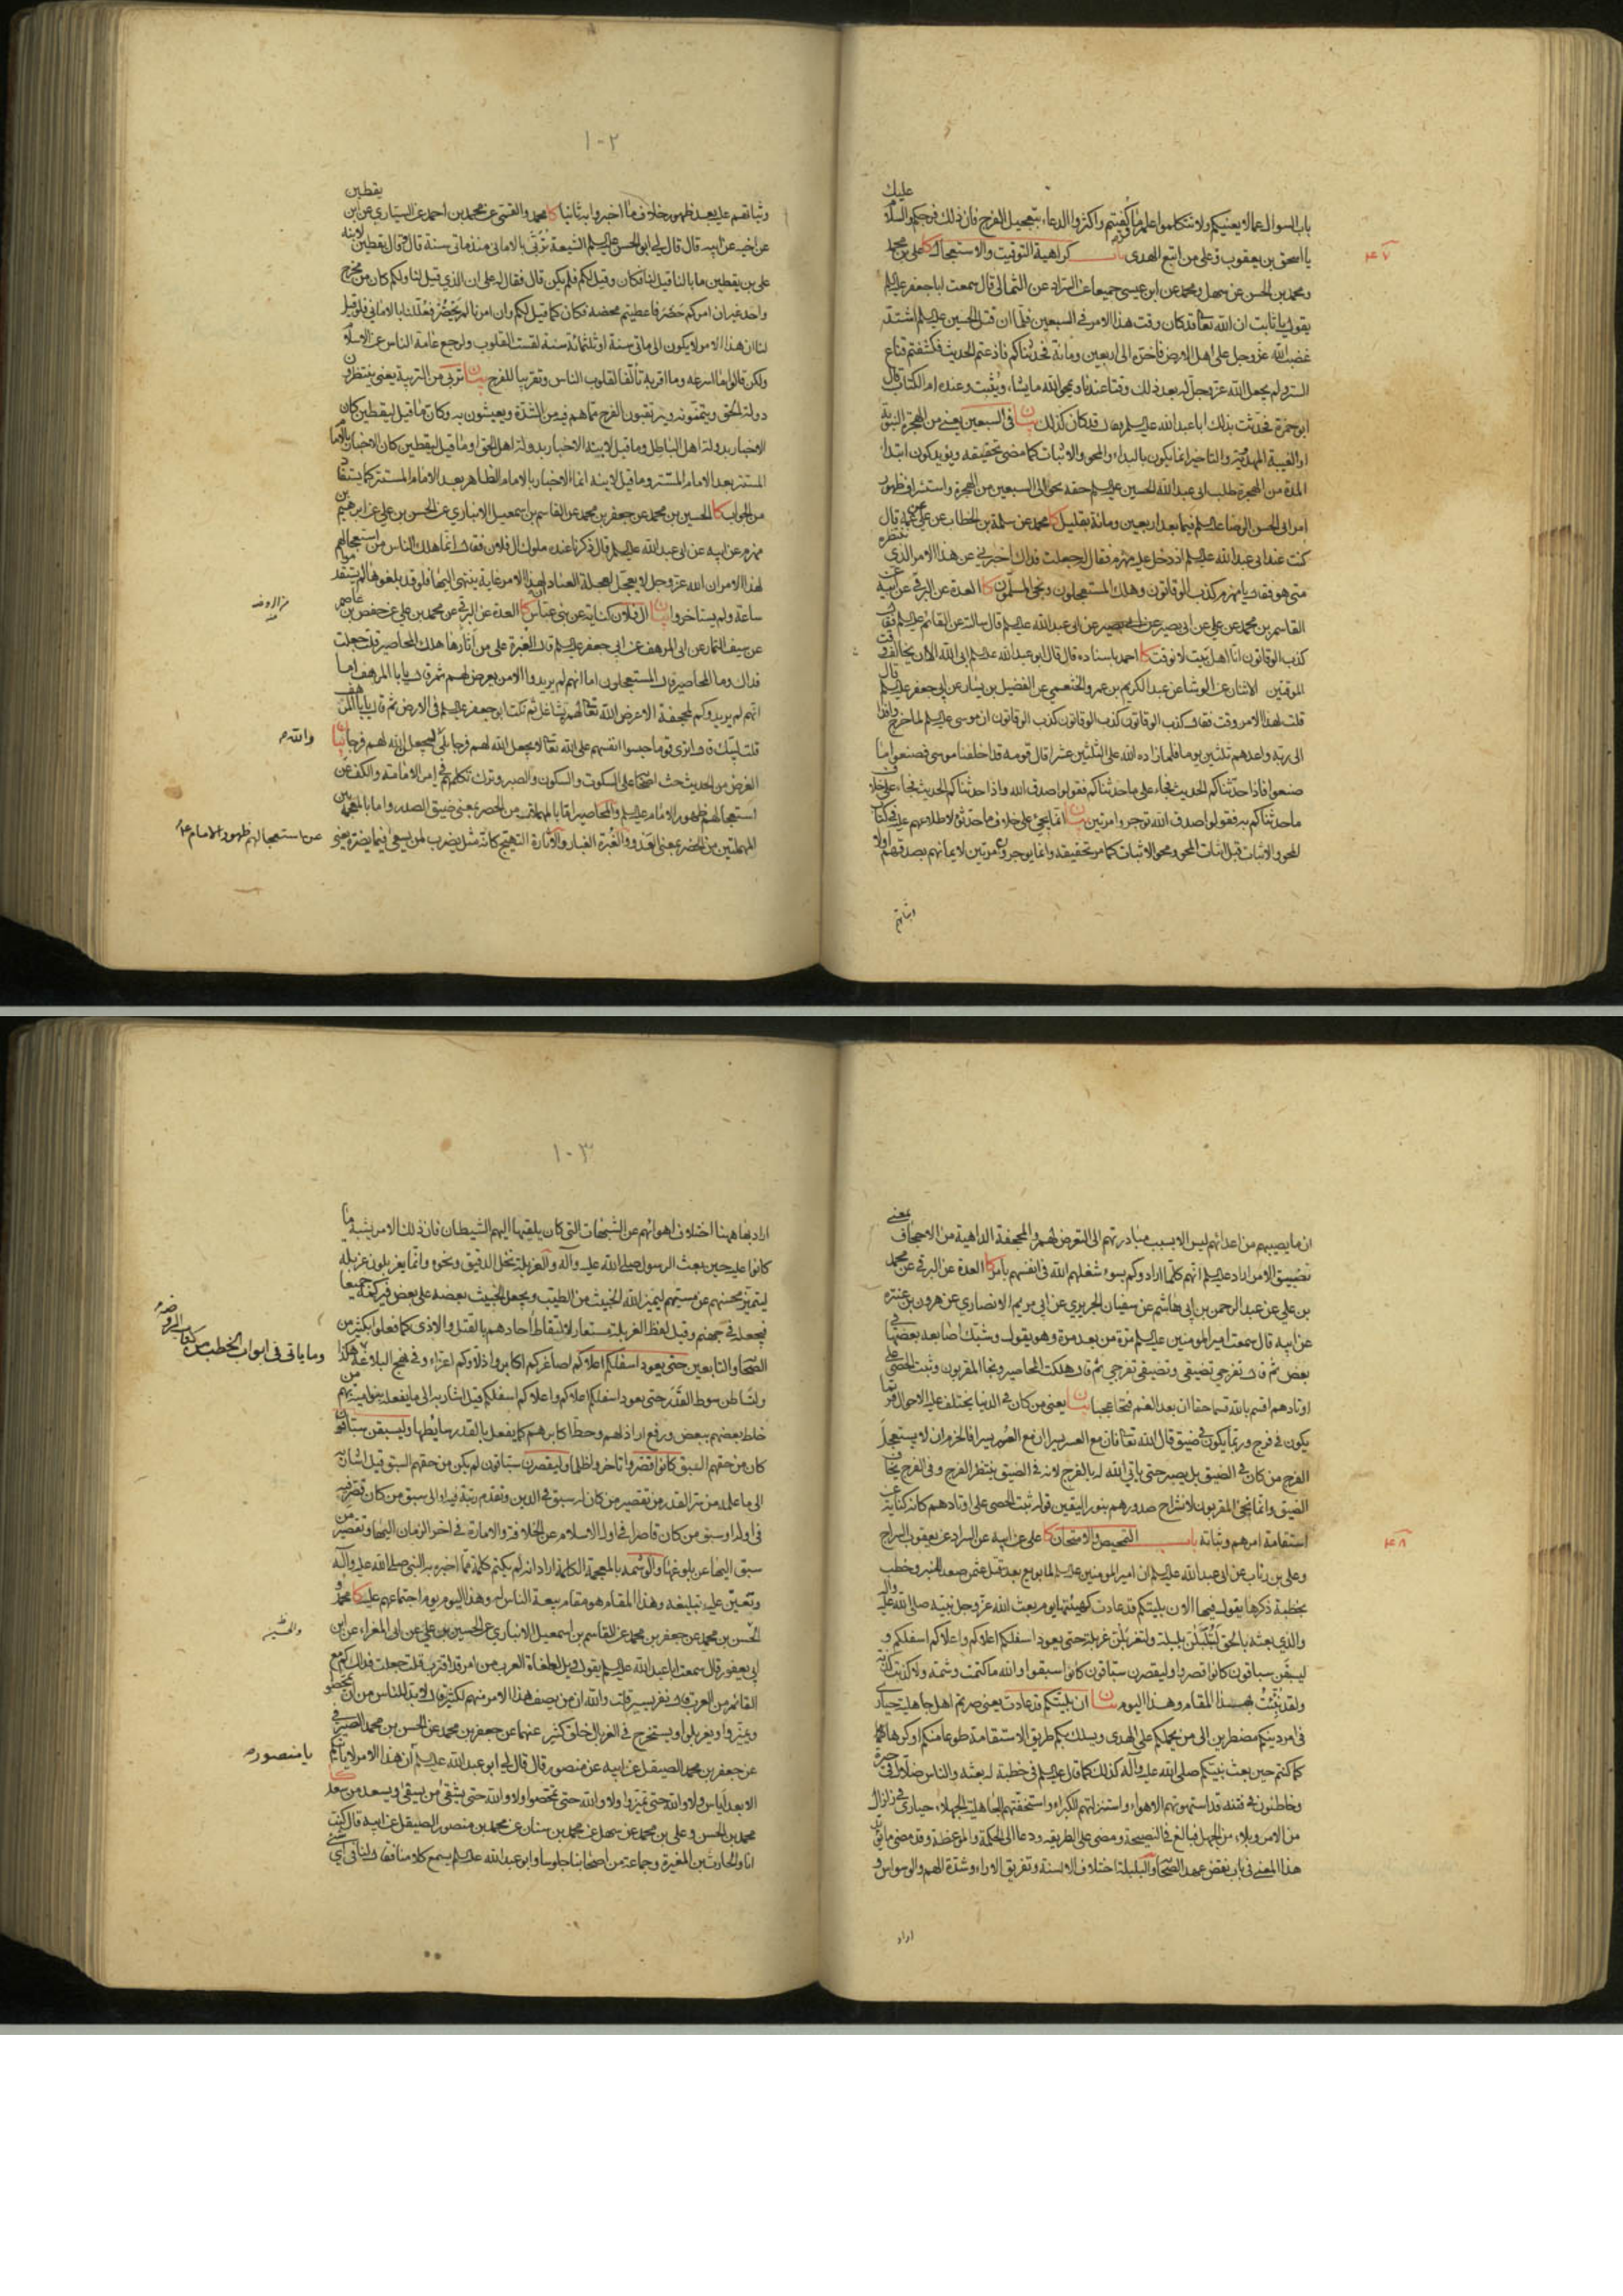 باب السوال عما لا يعنيكم ولا تتكلفوا علم ما كفيتم واكثروا الدعاء بتعجيل الفرج فان ذلك فرجكم والسلام عليك
يا اسحق بن يعقوب وعلى من اتبع الهدى باب كراهية التوقيت والاستعجال كا على بن محمد
۴۷
ومحمد بن الحسن عن سهل ومحمد عن ابن عيسى جميعا عن السراد عن الثمالى قال سمعت ابا جعفر عليه السلم
يقول يا ثابت ان الله تعالى قد كان وقت هذا الامر فى السبعين فلما ان قتل الحسين عليه السلم اشتد
غضب الله عز وجل على اهل الارض فاخره الى اربعين ومائة فحدثناكم فاذعتم الحديث فكشفتم قناع
الستر ولم يجعل الله عز وجل له بعد ذلك وقتا عندنا ويمحو الله ما يشاء ويثبت وعنده ام الكتاب قال
ابو حمزة فحدثت بذلك ابا عبد الله عليه السلم فقال قد كان كذلك بيان فى السبعين يعنى من الهجرة النبوية
او الغيبة المهدية والتاخير انما يكون بالبداء والمحو والاثبات كما مضى تحقيقه ويؤيد كون ابتداء
المدة من الهجرة طلب ابى عبد الله الحسين عليه السلم حقه بحوالى السبعين من الهجرة واستشراف ظهور
امر ابى الحسن الرضا عليه السلم فيما بعد اربعين ومائة بقليل كا محمد عن سلمة بن الخطاب عن على عن عمه قال
كنت عند ابى عبد الله عليه السلم اذ دخل عليه مهزم فقال له جعلت فداك اخبرنى عن هذا الامر الذى ننتظره
متى هو فقال يا مهزم كذب الوقاتون وهلك المستعجلون ونجى المسلمون كا العدة عن البرقى عن ابيه عن
القاسم بن محمد عن على عن ابى بصير عن ابى عبد الله عليه السلم قال سالته عن القائم عليه السلم فقال
كذب الوقاتون انا اهل بيت لا نوقت كا احمد باسناده قال قال ابو عبد الله عليه السلم ابى الله الا ان يخالف وقت
الموقتين الاثنان عن الوشا عن عبد الكريم بن عمرو الخثعمى عن الفضيل بن يسار عن ابى جعفر عليه السلم قال
قلت لهذا الامر وقت فقال كذب الوقاتون كذب الوقاتون كذب الوقاتون ان موسى عليه السلم لما خرج وافدا
الى ربه واعدهم ثلثين يوما فلما زاده الله على الثلثين عشرا قال قومه قد اخلفنا موسى فصنعوا ما
صنعوا فاذا حدثناكم الحديث فجاء على ما حدثناكم فقولوا صدق الله واذا حدثناكم الحديث فجاء على خلاف
ما حدثناكم به فقولوا صدق الله توجروا مرتين بيان انما يجئ على خلاف ما حدثوا لاطلاعهم عليه فى كتاب
المحو والاثبات قبل اثبات المحو ومحو الاثبات كما مر تحقيقه وانما يوجرون مرتين لايمانهم بصدقهم اولا
وثباتهم
۱۰۲
وثباتهم عليه بعد ظهور خلاف ما اخبروا به ثانيا كا محمد والقمى عن محمد بن احمد عن السيارى عن ابن يقطين
عن اخيه عن ابيه قال قال لى ابو الحسن عليه السلم الشيعة تربى بالامانى منذ مائتى سنة قال وقال يقطين لابنه
على بن يقطين ما بالنا قيل لنا فكان وقيل لكم فلم يكن قال فقال له على ان الذى قيل لنا ولكم كان من مخرج
واحد غير ان امركم حضر فاعطيتم محضه فكان كما قيل لكم وان امرنا لم يحضر فعللنا بالامانى فلو قيل
لنا ان هذا الامر لا يكون الى مائتى سنة او ثلثمائة سنة لقست القلوب ولرجع عامة الناس عن الاسلام
ولكن قالوا ما اسرعه وما اقربه تالفا لقلوب الناس وتقريبا للفرج بيان تربى من التربية يعنى ينتظرون
دولة الحق ويتمنونه ويرتقبون الفرج مما هم فيه من الشدة ويعيشون به وكان ما قيل ليقطين كان
الاخبار بدولة اهل الباطل وما قيل لابنه الاخبار بدولة اهل الحق او ما قيل ليقطين كان الاخبار بالامام
المستتر بعد الامام المستتر وما قيل لابنه انما الاخبار بالامام الظاهر بعد الامام المستتر كما يستفاد
من الجواب كا الحسين بن محمد عن جعفر بن محمد عن القاسم بن اسمعيل الانبارى عن الحسن بن على عن ابرهيم بن
مهزم عن ابيه عن ابى عبد الله عليه السلم قال ذكرنا عنده ملوك ال فلان فقال انما هلك الناس من استعجالهم
لهذا الامر ان الله عز وجل لا يعجل لعجلة العباد ان لهذا الامر غاية ينتهى اليها فلو قد بلغوها لم يستقدموا
ساعة ولم يستاخروا بيان ال فلان كناية عن بنى عباس كا العدة عن البرقى عن محمد بن على عن حفص بن عاصم
من الروضة
عن سيف التمار عن ابى المرهف عن ابى جعفر عليه السلم قال الغبرة على من اثارها هلك المحاصير قلت جعلت
فداك وما المحاصير قال المستعجلون اما انهم لم يريدوا الا من يعرض لهم ثم قال يا ابا المرهف اما
انهم لم يريدوكم لمجحفة الا عرض الله تعالى لهم بشاغل ثم نكت ابو جعفر عليه السلم فى الارض ثم قال يا ابا المرهف
قلت لبيك قال اترى قوما حبسوا انفسهم على الله تعالى لا يجعل الله لهم فرجا بلى ليجعلن الله لهم فرجا بيان
والله
الغرض من الحديث حث اصحابنا على السكوت والسكون والصبر وترك تكلمهم فى امر الامامة والكف عن
استعجالهم ظهور الامام عليه السلم والمحاصير اما بالمهملات من الحصر بمعنى ضيق الصدر واما بالمعجمة بين
المهملتين من الحضر بمعنى العدو والغبرة الغبار والاثارة التهييج كانه مثل يضرب لمن يسعى فيما يضره يعنى
عن استعجالهم ظهور الامام ع
ان ما يصيبهم من اعدائهم ليس الا بسبب مبادرتهم الى التعرض لهم والمجحفة الداهية من الاجحاف بمعنى
تضييق الامر اراد عليه السلم انهم كلما ارادوكم بسوء شغلهم الله فى انفسهم بامر كا العدة عن البرقى عن محمد
بن على عن عبد الرحمن بن ابى هاشم عن سفيان الجريرى عن ابى مريم الانصارى عن هرون بن عنتره
عن ابيه قال سمعت امير المومنين عليه السلم مرة من بعد مرة وهو يقول وشبك اصابعه بعضها فى
بعض ثم قال تفرجى تضيقى وتضيقى تفرجى ثم قال هلكت المحاصير ونجا المقربون وثبت الحصى على
اوتادهم اقسم بالله قسما حقا ان بعد الغم فتحا عجبا بيان يعنى من كان فى الدنيا يختلف عليه الاحوال فربما
يكون فى فرج وربما يكون فى ضيق قال الله تعالى فان مع العسر يسرا ان مع العسر يسرا فالحزم ان لا يستعجل
الفرج من كان فى الضيق بل يصبر حتى ياتى الله له بالفرج لانه فى الضيق ينتظر الفرج وفى الفرج يخاف
الضيق وانما نجى المقربون لانشراح صدورهم بنور اليقين قوله ثبت الحصى على اوتادهم كانه كناية عن
استقامة امرهم وثباته باب التمحيص والامتحان كا على عن ابيه عن السراد عن يعقوب السراج
۴۸
وعلى بن رئاب عن ابى عبد الله عليه السلم ان امير المومنين عليه السلم لما بويع بعد مقتل عثمن صعد المنبر وخطب
بخطبة ذكرها يقول فيها الا ان بليتكم قد عادت كهيئتها يوم بعث الله عز وجل نبيه صلى الله عليه واله
والذى بعثه بالحق لتبلبلن بلبلة ولتغربلن غربلة حتى يعود اسفلكم اعلاكم واعلاكم اسفلكم و
ليسبقن سباقون كانوا قصروا وليقصرن سباقون كانوا سبقوا والله ما كتمت وشمة ولا كذبت كذبة
ولقد نبئت بهذا المقام وهذا اليوم بيان ان بليتكم قد عادت يعنى صرتم اهل جاهلية حيارى
فى امر دينكم مضطرين الى من يحملكم على الهدى ويسلك بكم طريق الاستقامة طوعا منكم او كرها كما
كما كنتم حين بعث نبيكم صلى الله عليه وآله كذلك كما قال عليه السلم فى خطبة له بعثه والناس ضلال فى حيرة
وخاطئون فى فتنة قد استهوتهم الاهواء واستزلتهم الكبراء واستخفتهم الجاهلية الجهلاء حيارى فى زلزال
من الامر وبلاء من الجهل فبالغ فى النصيحة ومضى على الطريقه ودعا الى الحكمة والموعظة وقد مضى ما يؤيد
هذا المعنى فى باب نقض عهد الصحابة والبلبلة اختلاف الالسنة وتفريق الاراء وشدة الهم والوسواس و
اراد
۱۰۳
اراد بها ههنا اختلاف اهوائهم عن الشبهات التى كان يلقيها اليهم الشيطان فان ذلك الامر يشبه ما
كانوا عليه حين بعث الرسول صلى الله عليه وآله والغربلة نخل الدقيق ونحوه وانما يغربلون غربلة
ليتميز محسنهم عن مسيئهم ليميز الله الخبيث من الطيب ويجعل الخبيث بعضه على بعض فيركمه جميعا
فيجعله فى جهنم وقيل لفظ الغربلة مستعار لالتقاط احادهم بالقتل والاذى كما فعلوا بكثير من
الصحابة والتابعين حتى يعود اسفلكم اعلاكم اصاغركم اكابر واذلاؤكم اعزاء وفى نهج البلاغة هكذا
وما ياتى فى ابواب الخطب من كتاب الروضة
ولتساطن سوط القدر حتى يعود اسفلكم اعلاكم واعلاكم اسفلكم قيل اشار به الى ما يفعله بنو امية بهم من
خلط بعضهم ببعض ورفع اراذلهم وحط اكابرهم كما يفعل بالقدر سايطها وليسبقن سباقون
كان من حقهم السبق كانوا قصروا تاخروا ظلما وليقصرن سباقون لم يكن من حقهم السبق قيل اشار به
الى ما علمه من سر القدر من تقصير من كان له سبق فى الدين وتقدم رتبة فيه او الى سبق من كان قصر فيه
فى اوله او سبق من كان قاصرا فى اول الاسلام عن الخلافة والامارة فى اخر الزمان اليها وتقصير من
سبق اليها عن بلوغها والوشمة بالمعجمة الكلمة اراد انه لم يكتم كلمة مما اخبره به النبى صلى الله عليه وآله
وتعين عليه تبليغه وهذا المقام هو مقام بيعة الناس له وهذا اليوم يوم اجتماعهم عليه كا محمد و
الحسن بن محمد عن جعفر بن محمد عن القاسم بن اسمعيل الانبارى عن الحسين بن على عن ابى المغراء عن ابن
والحسين
ابى يعفور قال سمعت ابا عبد الله عليه السلم يقول ويل لطغاة العرب من امر قد اقترب قلت جعلت فداك كم مع
القائم من العرب قال نفر يسير قلت والله ان من يصف هذا الامر منهم لكثير قال لا بد للناس من ان يمحصوا
ويميزوا ويغربلوا ويستخرج فى الغربال خلق كثير عنهما عن جعفر بن محمد عن الحسن بن محمد الصيرفى
عن جعفر بن محمد الصيقل عن ابيه عن منصور قال قال لى ابو عبد الله عليه السلم ان هذا الامر لا ياتيكم
يا منصور
الا بعد اياس ولا والله حتى تميزوا ولا والله حتى تمحصوا ولا والله حتى يشقى من يشقى ويسعد من يسعد كا
محمد بن الحسن وعلى بن محمد عن سهل عن محمد بن سنان عن محمد بن منصور الصيقل عن ابيه قال كنت
انا والحارث بن المغيرة وجماعة من اصحابنا جلوسا وابو عبد الله عليه السلم يسمع كلامنا فقال لنا فى اى شئ